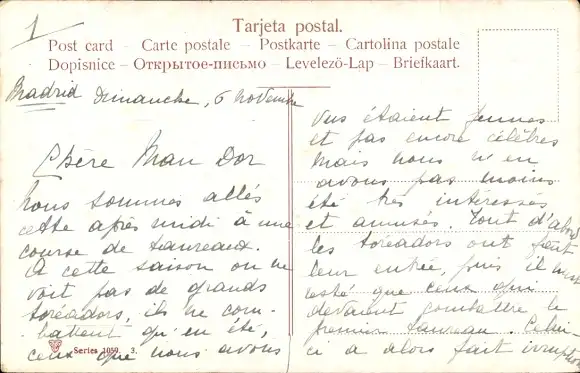 1
Tarjeta postal.
Post card – Carte postale – Postkarte – Cartolina postale
Dopisnice – Открытое-письмо – Levelezö-Lap – Briefkaart.
Madrid Dimanche, 6 Novembre
Chère Man Dor
nous sommes allés
cette après midi à une
course de taureaux.
A cette saison on ne
voit pas de grands
toréadors, ils ne com-
battent qu'en été,
ceux que nous avons
Series 1059. 3.
vus étaient jeunes
et pas encore célèbres
mais nous n'en
avons pas moins
été très intéressés
et amusés. Tout d'abord
les toréadors ont fait
leur entrée, puis il n'est
resté que ceux qui
devaient combattre le
premier taureau. Celui
ci a alors fait irruption